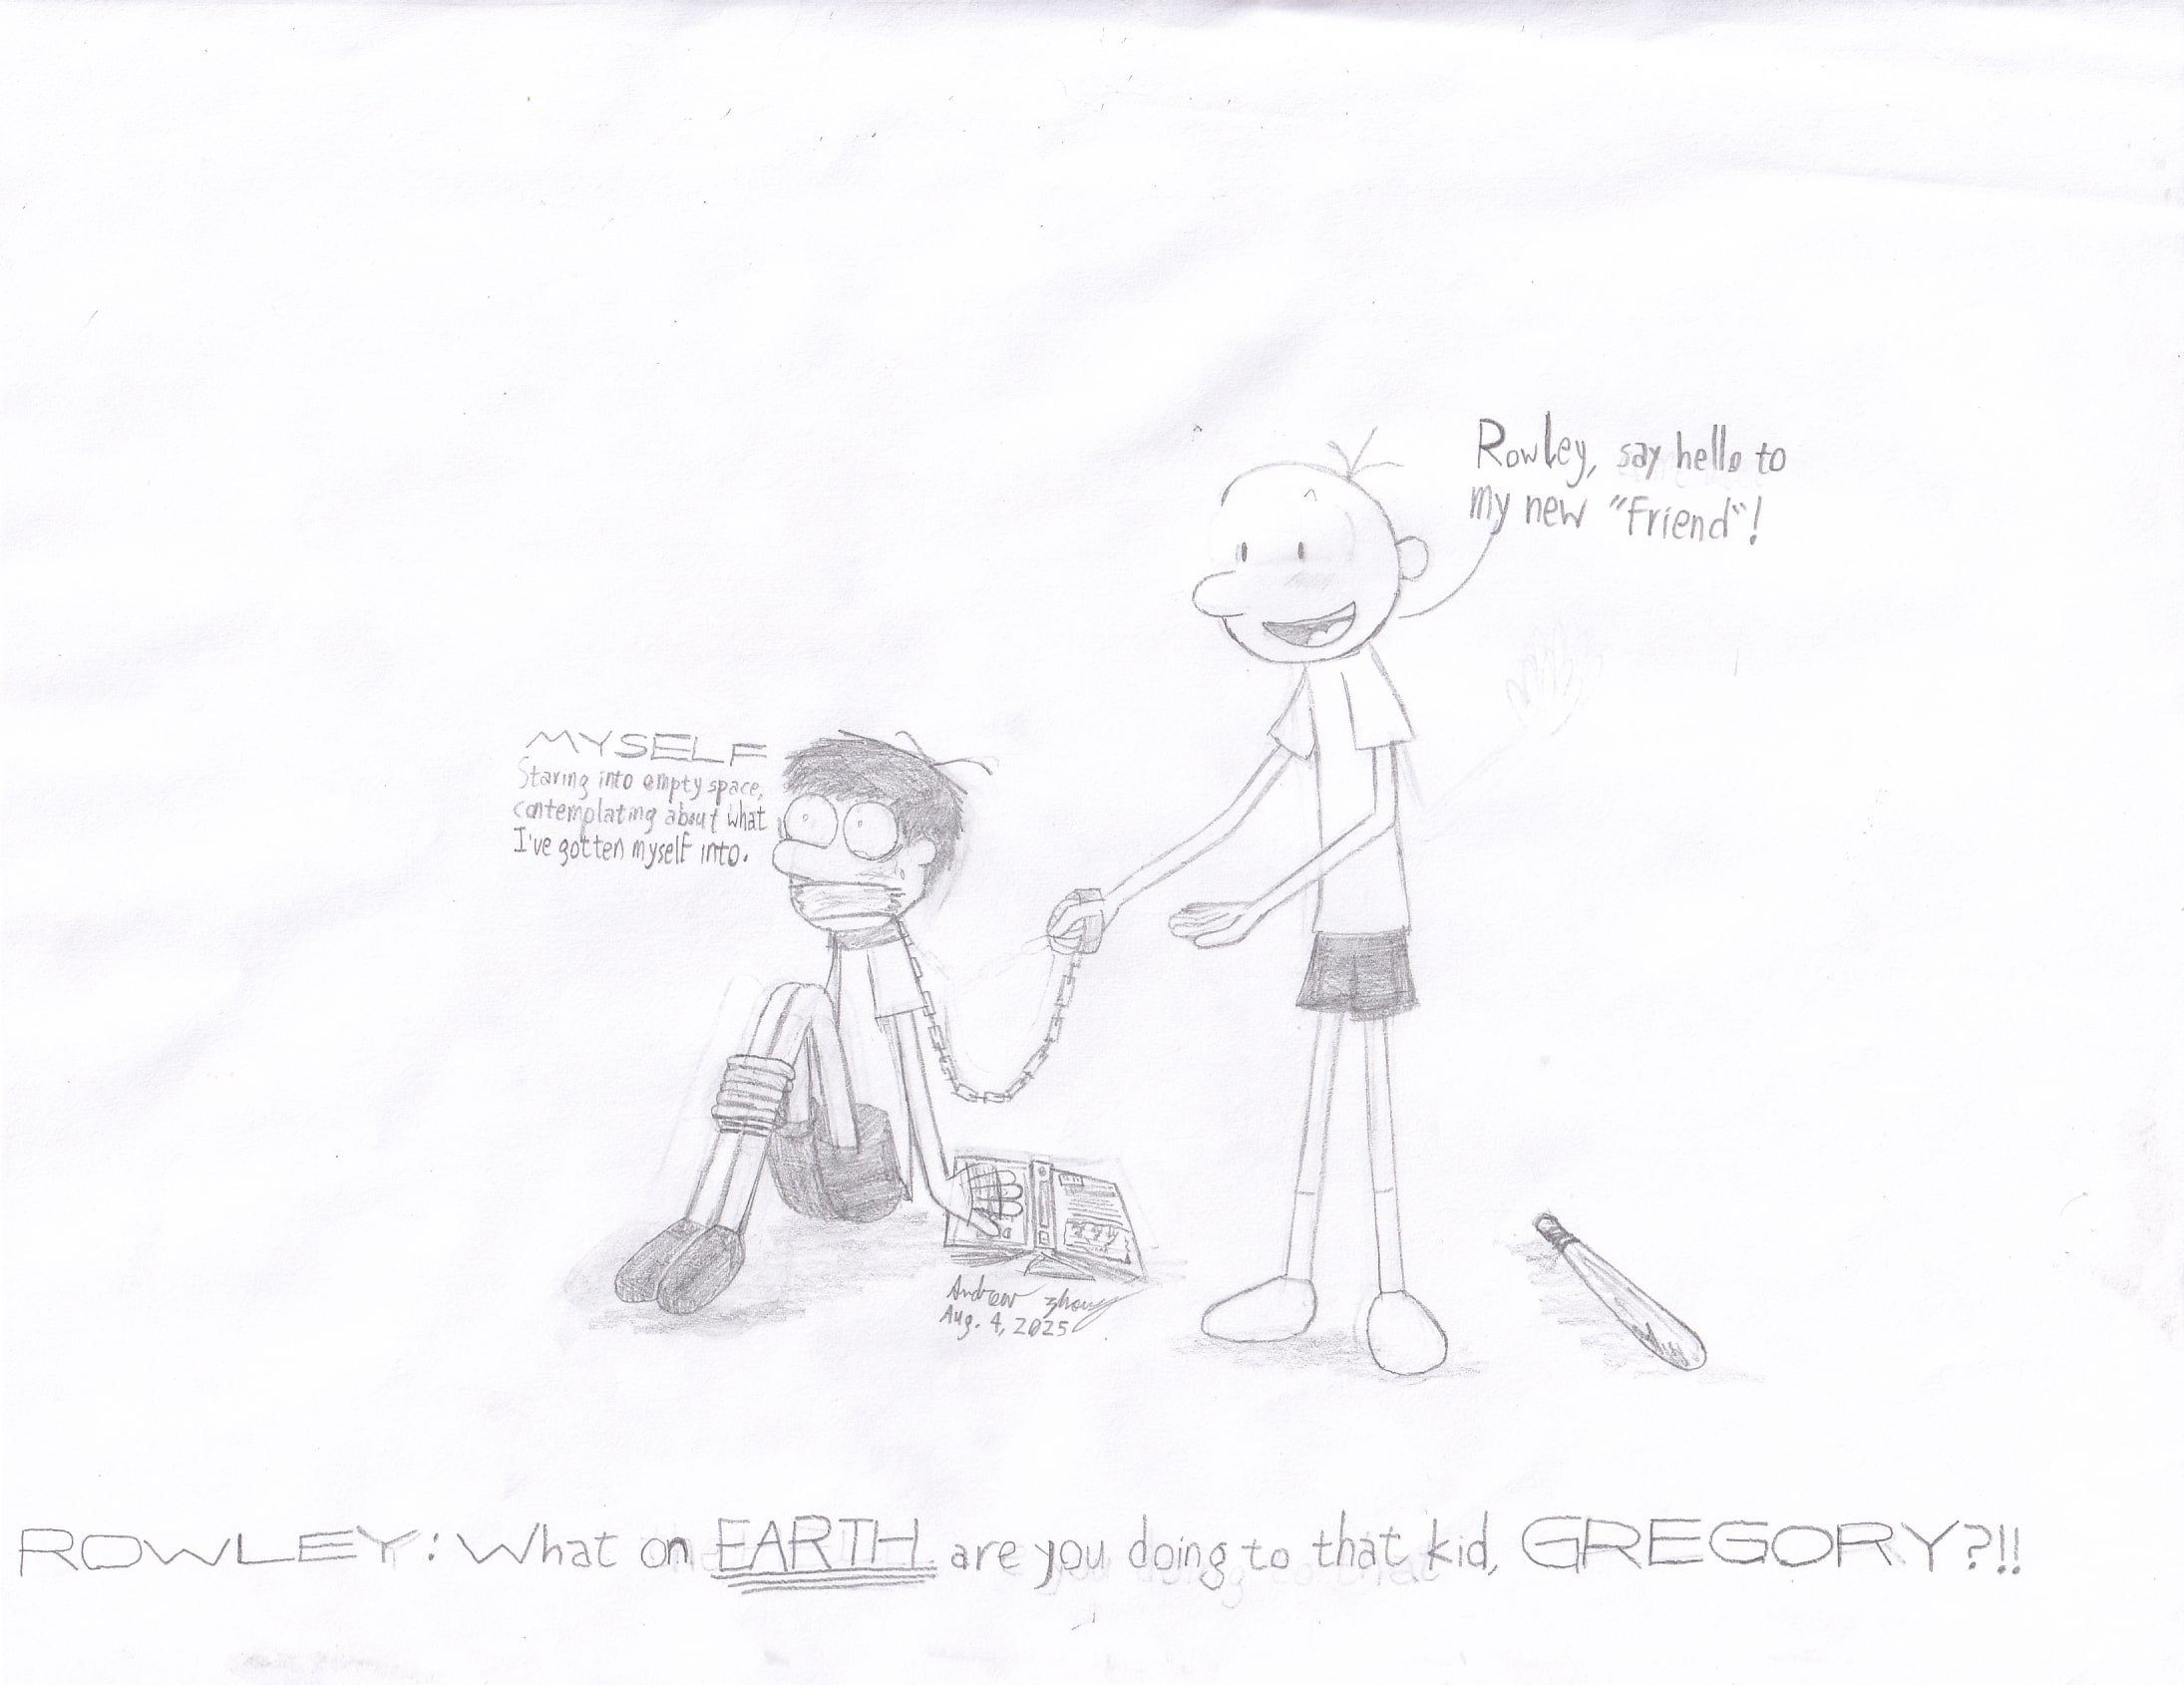 Rowley, say hello to
my new "Friend"!
MYSELF
Staring into empty space,
contemplating about what
I've gotten myself into.
Andrew Zhong
Aug. 4, 2025
ROWLEY: What on EARTH are you doing to that kid, GREGORY?!!